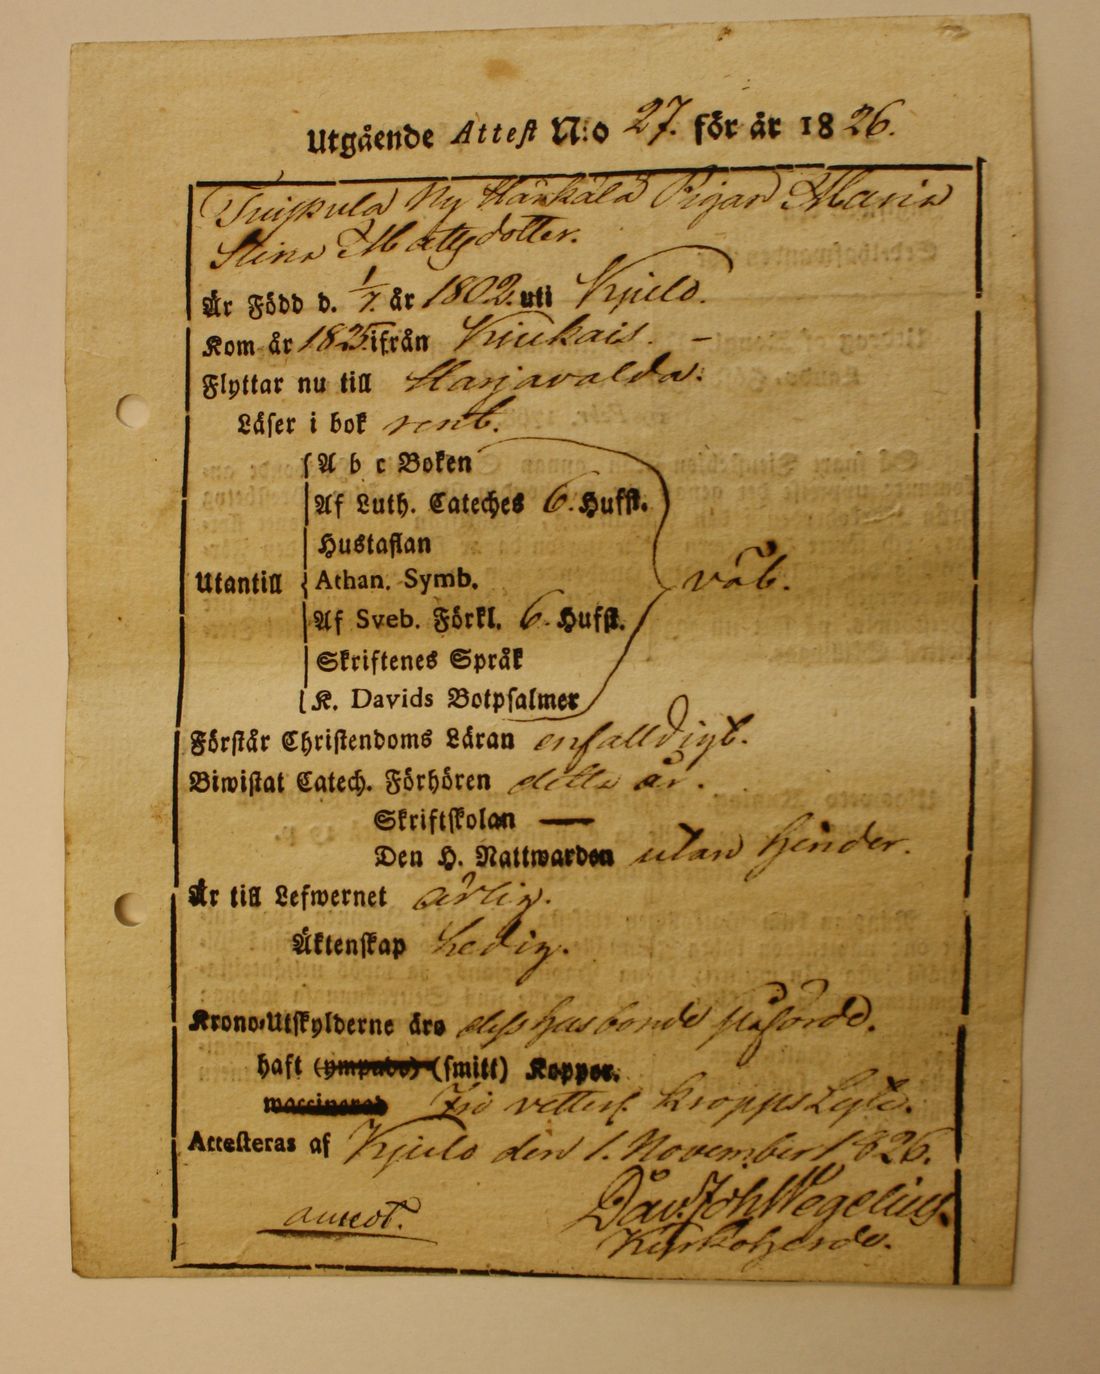 Utgående Attest N:o 27. för år 1826.
Tuiskula Ny Härkälä Pigan Maria
Stina Mattsdotter.
Är Född d. 1/7. år 1802. uti Kjulo.
Kom år 1825. ifrån Kiukais. –
Flyttar nu till Harjavalda.
Läser i bok rent.
A b c Boken
Af Luth. Cateches 6. Hufst.
Hustaflan
Utantill Athan. Symb. väl.
Af Sveb. Förkl. 6. Hufst.
Skriftenes Språk
K. Davids Botpsalmer
Förstår Christendoms Läran enfalldigt.
Biwistat Catech. Förhören detta år.
Skriftskolan —
Den H. Nattwarden utan hinder.
Är till Lefwernet ärlig.
Äktenskap Ledig.
Krono-Utskylderne äro dess husbonde påförde.
haft (ympade) (smitt) Koppor.
waccinerad Fri vetterl. kropps Lyte.
Attesteras af Kjulo den 1. November 1826.
Dav. Joh Wegelius.
Kyrkoherde.